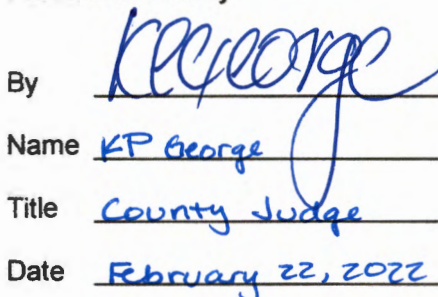 By KPGeorge
Name KP George
Title County Judge
Date February 22, 2022